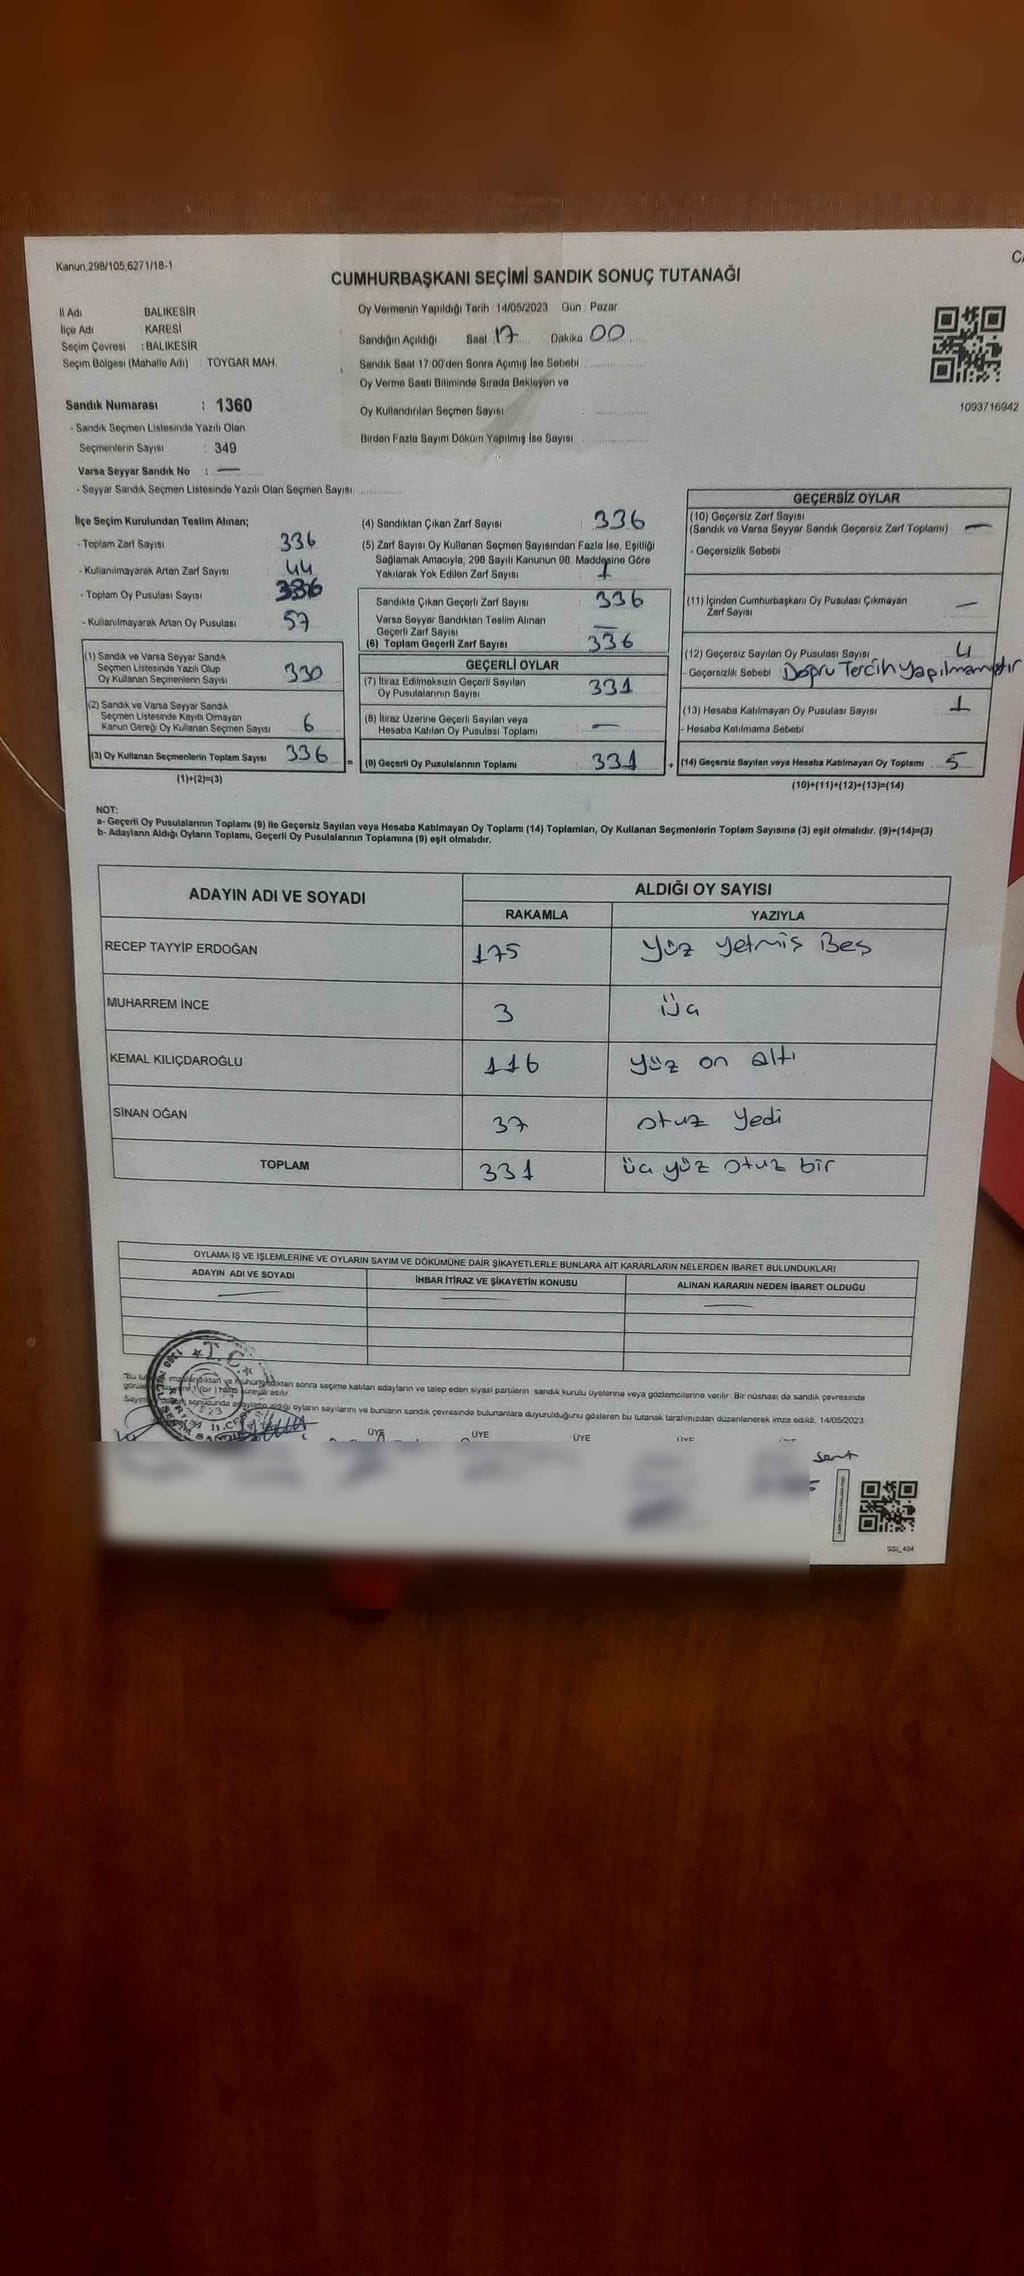 Kanun,298/105,6271/18-1
CUMHURBAŞKANI SEÇİMİ SANDIK SONUÇ TUTANAĞI
İl Adı BALIKESİR
İlçe Adı KARESİ
Seçim Çevresi : BALIKESİR
Seçim Bölgesi (Mahalle Adı) : TOYGAR MAH.
Oy Vermenin Yapıldığı Tarih : 14/05/2023 Gün : Pazar
Sandığın Açıldığı Saat 17 Dakika 00
Sandık Saat 17:00'den Sonra Açımış İse Sebebi
Oy Verme Saati Bitiminde Sırada Bekleyen ve
Oy Kullandırılan Seçmen Sayısı
Birden Fazla Sayım Döküm Yapılmış İse Sayısı
1093716942
Sandık Numarası : 1360
- Sandık Seçmen Listesinde Yazılı Olan
Seçmenlerin Sayısı : 349
Varsa Seyyar Sandık No : —
- Seyyar Sandık Seçmen Listesinde Yazılı Olan Seçmen Sayısı
İlçe Seçim Kurulundan Teslim Alınan;
- Toplam Zarf Sayısı 336
- Kullanılmayarak Artan Zarf Sayısı 44
- Toplam Oy Pusulası Sayısı
- Kullanılmayarak Artan Oy Pusulası 57
(1) Sandık ve Varsa Seyyar Sandık
Seçmen Listesinde Yazılı Olup
Oy Kullanan Seçmenlerin Sayısı 330
(2) Sandık ve Varsa Seyyar Sandık
Seçmen Listesinde Kayıtlı Olmayan
Kanun Gereği Oy Kullanan Seçmen Sayısı 6
(3) Oy Kullanan Seçmenlerin Toplam Sayısı 336
(1)+(2)=(3)
(4) Sandıktan Çıkan Zarf Sayısı : 336
(5) Zarf Sayısı Oy Kullanan Seçmen Sayısından Fazla İse, Eşitliği
Sağlamak Amacıyla, 298 Sayılı Kanunun 98. Maddesine Göre
Yakılarak Yok Edilen Zarf Sayısı : 1
Sandıkta Çıkan Geçerli Zarf Sayısı : 336
Varsa Seyyar Sandıktan Teslim Alınan
Geçerli Zarf Sayısı —
(6) Toplam Geçerli Zarf Sayısı 336
GEÇERLİ OYLAR
(7) İtiraz Edilmeksizin Geçerli Sayılan
Oy Pusulalarının Sayısı 331
(8) İtiraz Üzerine Geçerli Sayılan veya
Hesaba Katılan Oy Pusulası Toplamı —
(9) Geçerli Oy Pusulalarının Toplamı : 331
GEÇERSİZ OYLAR
(10) Geçersiz Zarf Sayısı
(Sandık ve Varsa Seyyar Sandık Geçersiz Zarf Toplamı) —
- Geçersizlik Sebebi :
(11) İçinden Cumhurbaşkanı Oy Pusulası Çıkmayan
Zarf Sayısı —
(12) Geçersiz Sayılan Oy Pusulası Sayısı 4
- Geçersizlik Sebebi Doğru Tercih Yapılmamıştır
(13) Hesaba Katılmayan Oy Pusulası Sayısı 1
- Hesaba Katılmama Sebebi
(14) Geçersiz Sayılan veya Hesaba Katılmayan Oy Toplamı 5
(10)+(11)+(12)+(13)=(14)
NOT:
a- Geçerli Oy Pusulalarının Toplamı (9) ile Geçersiz Sayılan veya Hesaba Katılmayan Oy Toplamı (14) Toplamları, Oy Kullanan Seçmenlerin Toplam Sayısına (3) eşit olmalıdır. (9)+(14)=(3)
b- Adayların Aldığı Oyların Toplamı, Geçerli Oy Pusulalarının Toplamına (9) eşit olmalıdır.
ADAYIN ADI VE SOYADI ALDIĞI OY SAYISI
RAKAMLA YAZIYLA
RECEP TAYYİP ERDOĞAN 175 Yüz Yetmiş Beş
MUHARREM İNCE 3 Üç
KEMAL KILIÇDAROĞLU 116 Yüz on altı
SİNAN OĞAN 37 otuz Yedi
TOPLAM 331 üç yüz otuz bir
OYLAMA İŞ VE İŞLEMLERİNE VE OYLARIN SAYIM VE DÖKÜMÜNE DAİR ŞİKAYETLERLE BUNLARA AİT KARARLARIN NELERDEN İBARET BULUNDUKLARI
ADAYIN ADI VE SOYADI İHBAR İTİRAZ VE ŞİKAYETİN KONUSU ALINAN KARARIN NEDEN İBARET OLDUĞU
sonra seçime katılan adayların ve talep eden siyasi partilerin sandık kurulu üyelerine veya gözlemcilerine verilir. Bir nüshası da sandık çevresinde
oyların sayılarını ve bunların sandık çevresinde bulunanlara duyurulduğunu gösteren bu tutanak tarafımızdan düzenlenerek imza edildi. 14/05/2023
T.C.
ÜYE ÜYE ÜYE ÜYE
SSI_404